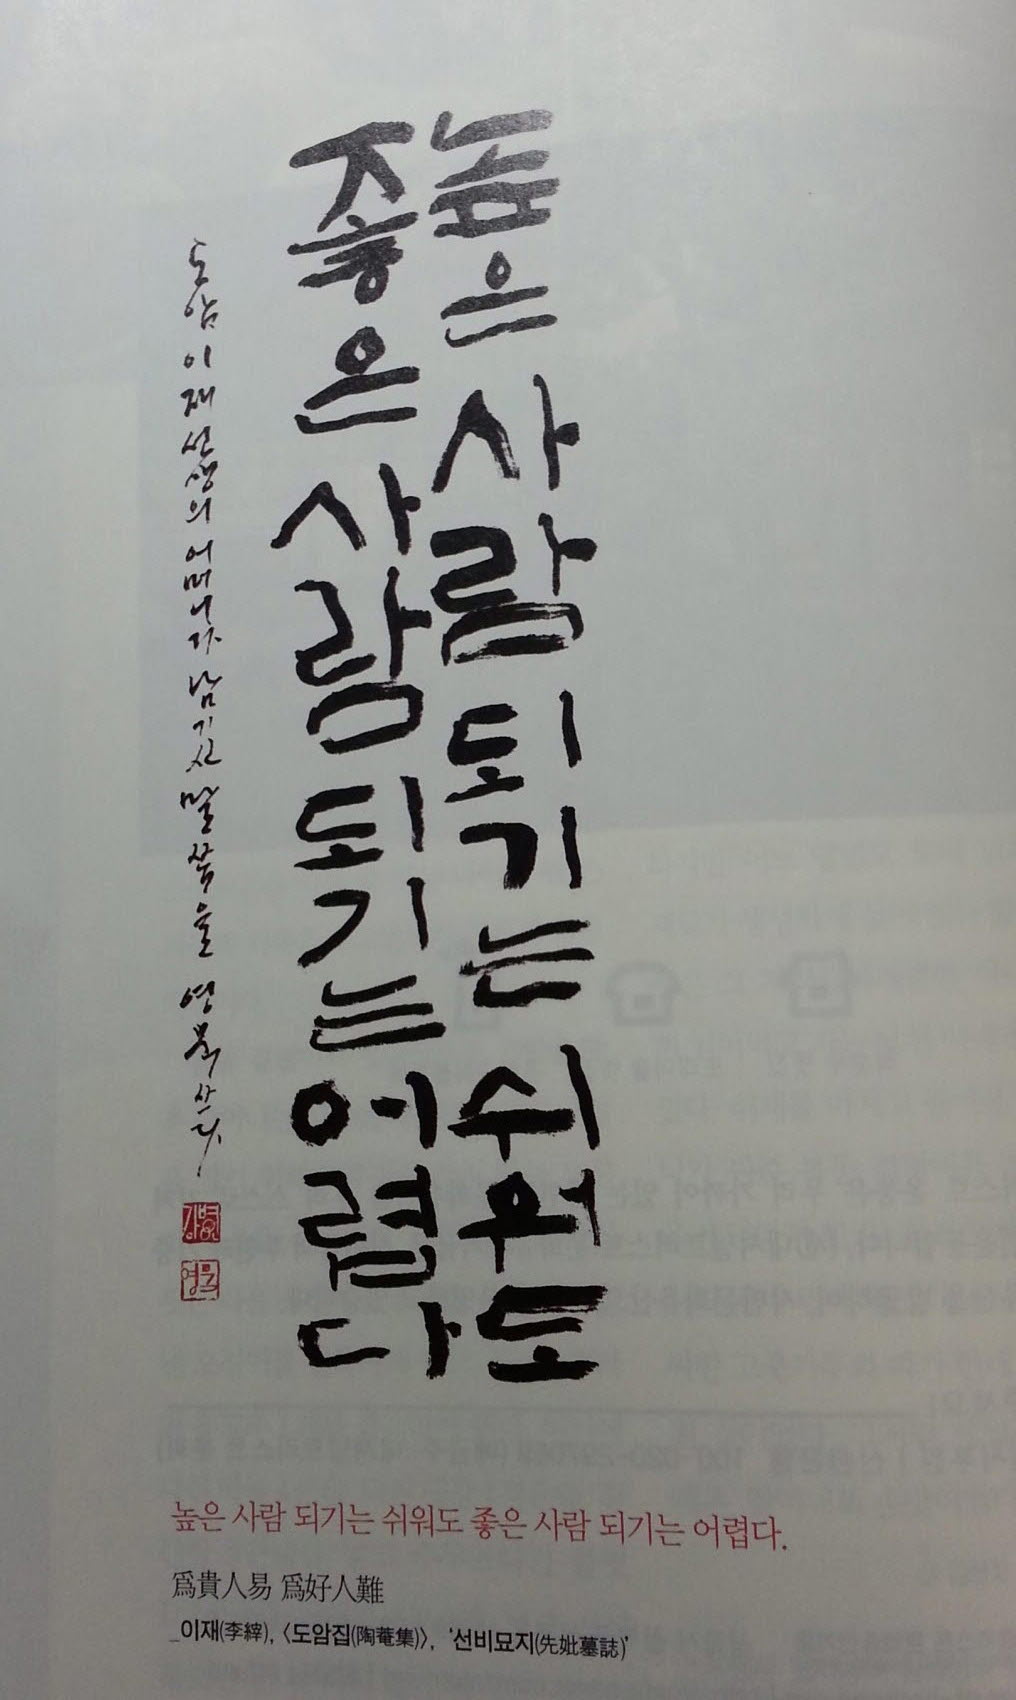 높은 사람 되기는 쉬워도
좋은 사람 되기는 어렵다
도암 이재 선생의 어머니가 남기신 말씀을 영묵 쓰다
강병인
영묵
높은 사람 되기는 쉬워도 좋은 사람 되기는 어렵다.
爲貴人易 爲好人難
_이재(李縡), 〈도암집(陶菴集)〉, '선비묘지(先妣墓誌)'